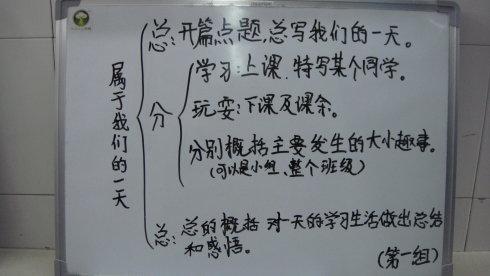 属于我们的一天
总:开篇点题,总写我们的一天。
分
学习:上课.特写某个同学。
玩耍:下课及课余。
分别概括主要发生的大小趣事。
(可以是小组、整个班级)
总:总的概括 对一天的学习生活做出总结
和感悟。
(第一组)